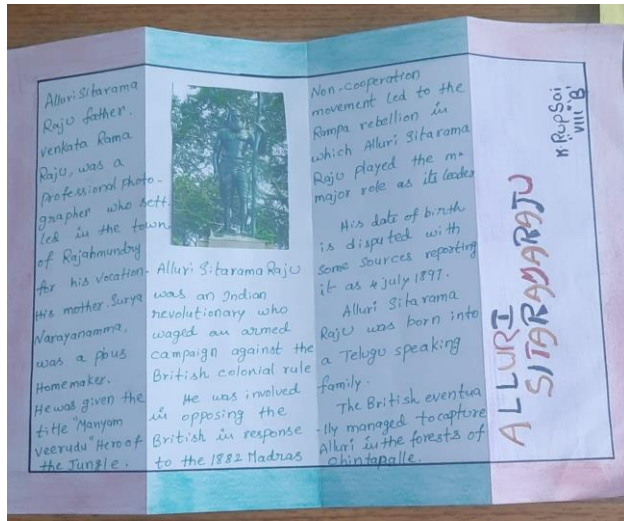 Alluri Sitarama
Raju father.
venkata Rama
Raju, was a
professional photo-
grapher who sett-
led in the town
of Rajahmundry
for his vocation-
His mother. Surya
Narayanamma,
was a pous
Homemaker.
He was given the
title "Manyam
veerudu" Hero of
the Jungle.
Alluri Sitarama Raju
was an Indian
revolutionary who
waged an armed
campaign against the
British colonial rule
He was involved
in opposing the
British in response
to the 1882 Madras
Non-Cooperation
movement led to the
Rampa rebellion in
which Alluri Sitarama
Raju played the m
major role as its leader
His date of birth
is disputed with
some sources reporting
it as 4 july 1897.
Alluri Sitarama
Raju was born into
a Telugu speaking
family.
The British eventua
-lly managed to capture
Alluri in the forests of
Chintapalle.
ALLURI
SITARAMARAJU
K. Rup Sai
VIII "B"